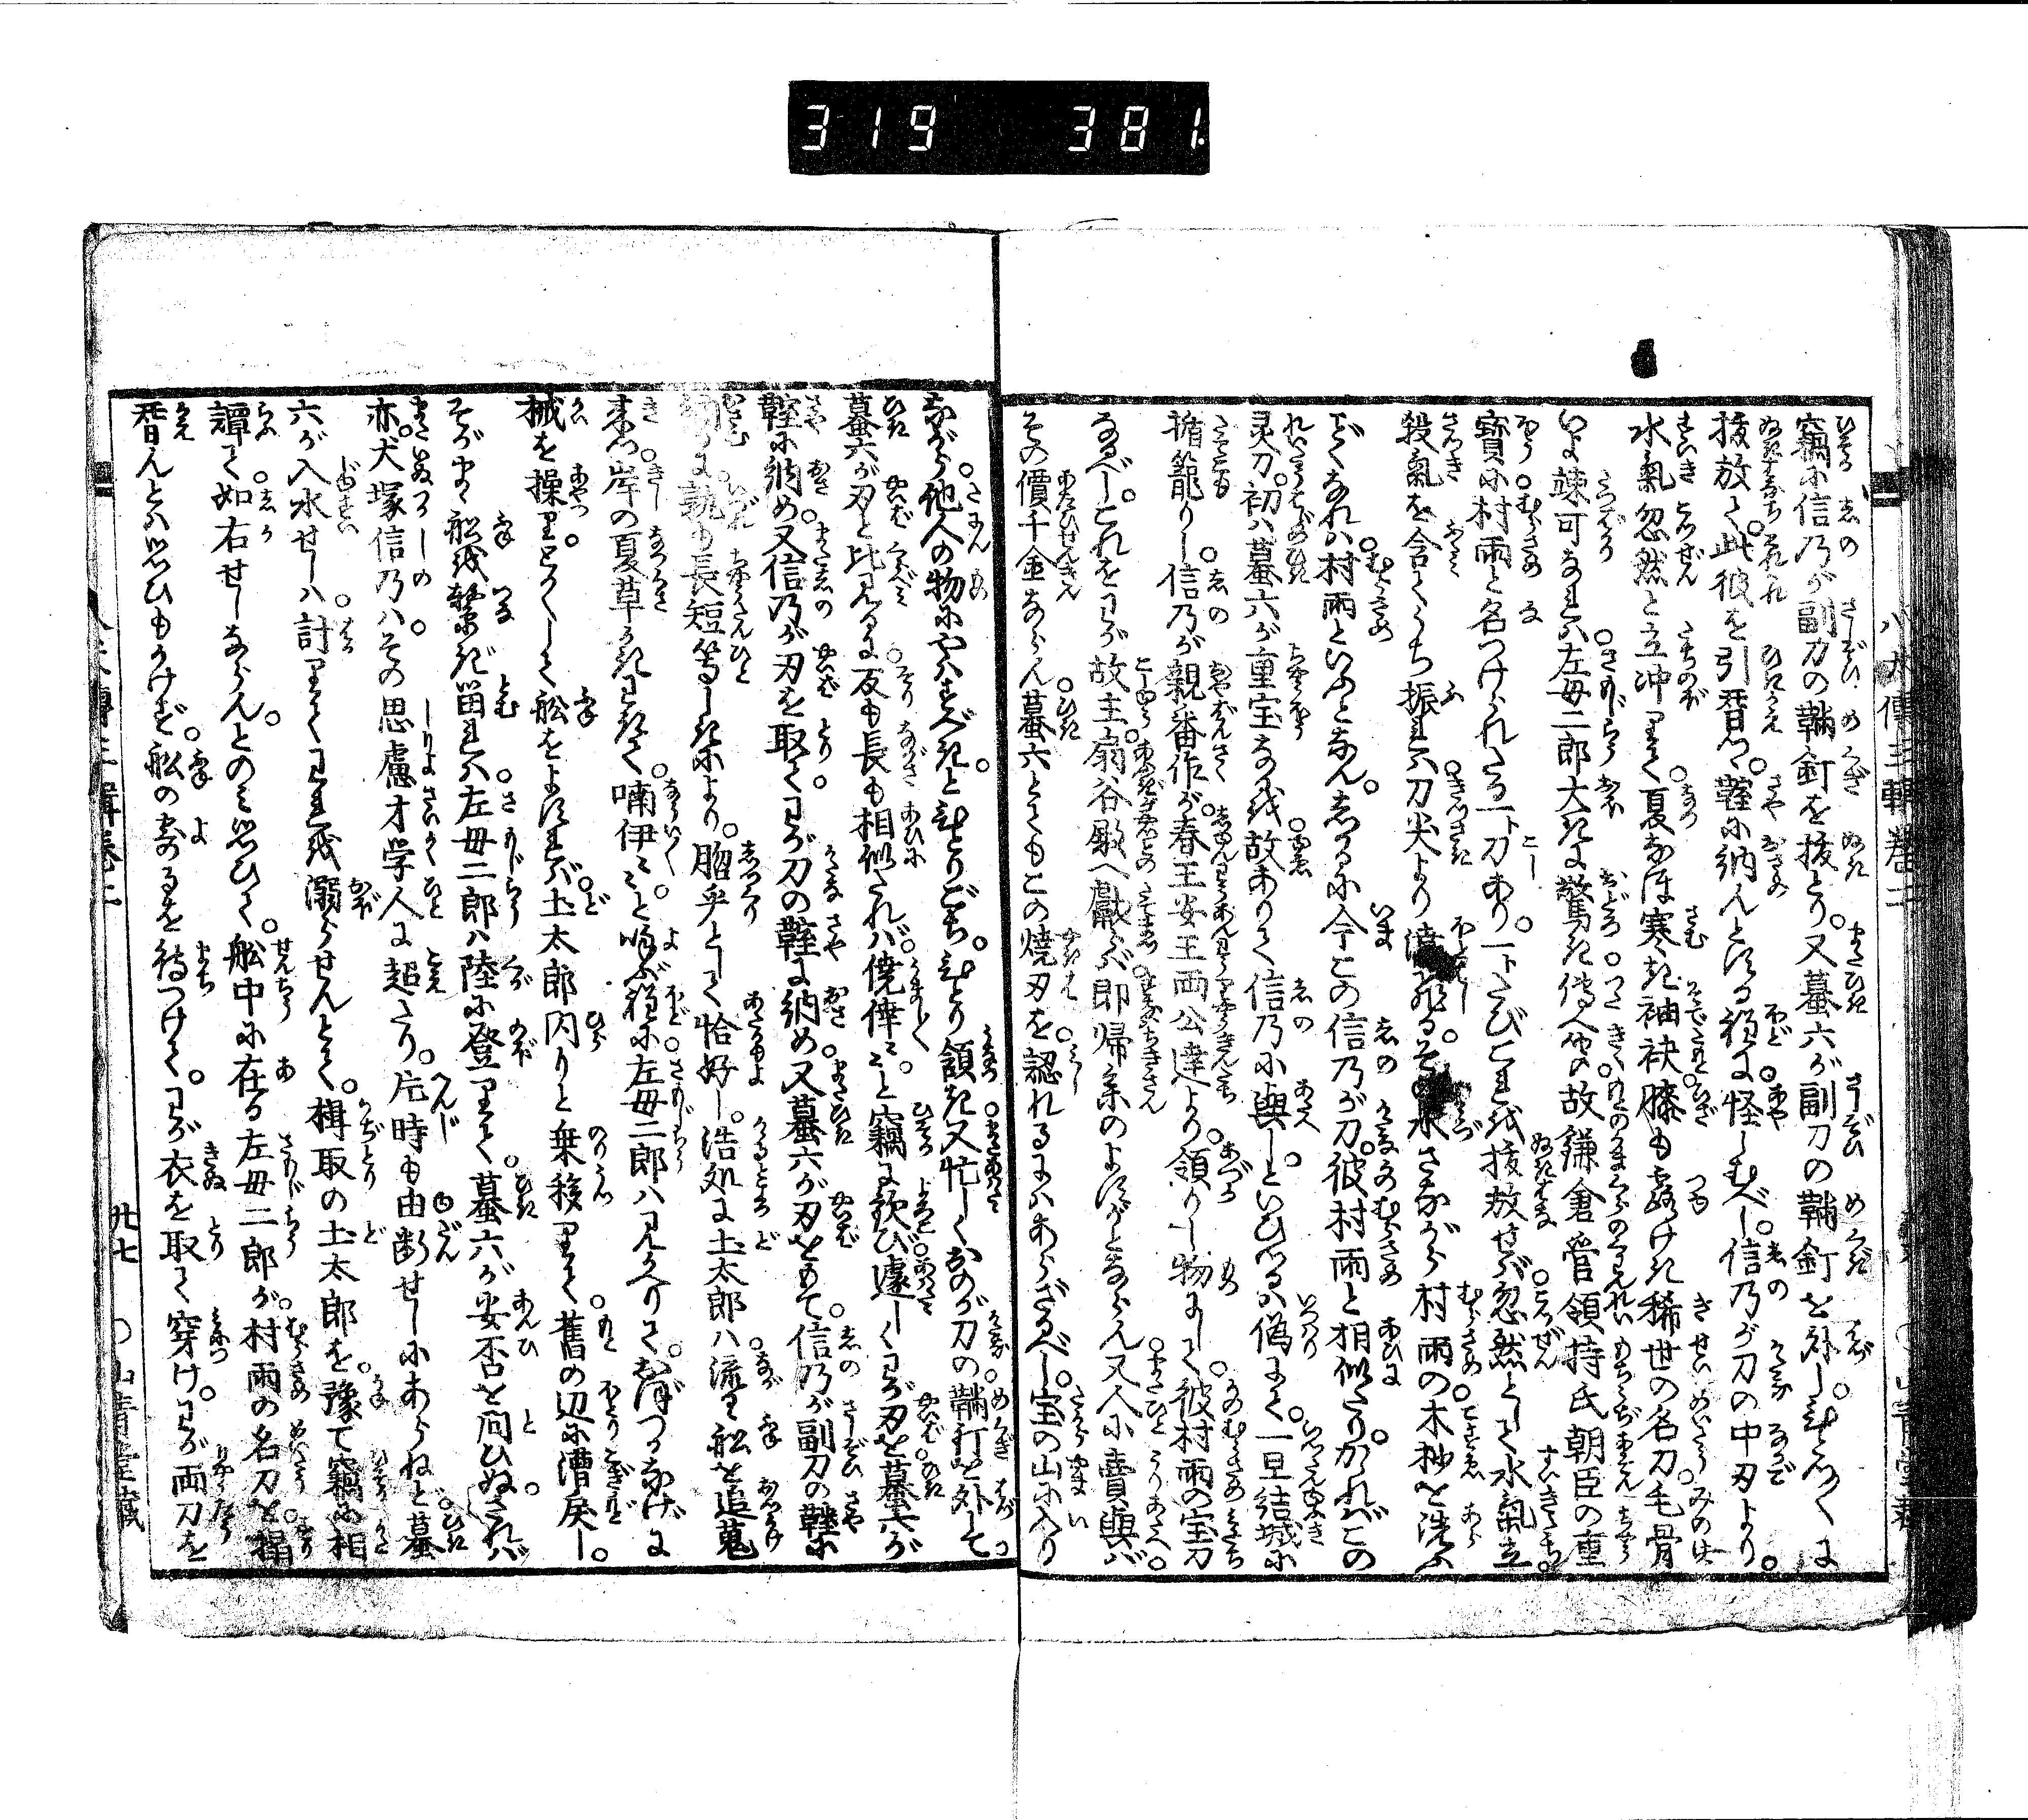 319 381
竊に信乃が副刀の鞆釘を抜とり。又蟇六が副刀の鞆釘を外し。しづやかに
抜放て。此彼を引替つ。鞘に納んとする程に怪しむべし。信乃が刀の中刃より。
水氣忽然と立冲りて。夏なほ寒き袖袂膝も露けき稀世の名刀毛骨
いよ竦可なれば左母二郎大きに驚き傳へ聞故鎌倉管領持氏朝臣の重
寶に村雨と名つけられたる一ト刀あり。一トたびこれを抜放せば忽然として水氣立
殺氣を含てうち振れば刀尖より滴るその水さながら村雨の木杪を洗ふ
ごとくなれば。村雨といふとなん。しかるに今この信乃が刀。彼村雨と相似たり。かゝればこの
灵刀。初は蟇六が重宝なるを故ありて信乃に與しといひつるは偽にて。一旦結城に
楯籠りし。信乃が親番作が。春王安王両公達より。領りし物にして。彼村雨の宝刀
なるべし。これをわが故主。扇谷殿へ獻らば即帰参のよすがとならん又人に賣與ば
その價千金ならん蟇六とてもこの焼刃を。認れるにはあらざるべし。宝の山に入り
ながら。他人の物にやはすべき。とひとりごち。ひとり頷き又忙しくおのが刀の鞆釘を外して
蟇六が刃と比るに反も長も相似たれば。僥倖々と竊に歓び遽しくわが刃を蟇六が
鞘に納め又信乃が刃を取てわが刀の鞘に納め又蟇六が刃をもて。信乃が副刀の鞘に
納るに。孰も長短等しきにより。𦜝乎として恰好し。浩処に土太郎ハ。流るゝ舩を追蒐
来つ。岸の夏草かきわきて。喃伊々々。と喚ぶ程に左母二郎ハ見かへりて。おぼつかなげに
械を操りとかくして舩をよすれば。土太郎閃りと乗移りて。舊の辺に漕戻し。
そがまゝ舩を繋ぎ畄れば。左母二郎ハ陸に登りて。蟇六が安否を問ひぬ。されば
亦。犬塚信乃ハ。その思慮才学人に超たり。片時も由断せしにあらねど。蟇
六が入水せしハ。討りてわれを溺らせんとて。楫取の土太郎を。豫て竊に相
譚て如右せしならん。とのみ思ひて。舩中に在る左母二郎が。村雨の名刀を。掉
替んとは思ひもかけず。舩の寄るを待つけて。わが衣を取て穿け。わが両刀を
八犬傳三輯巻二
廿七
〇山青堂藏